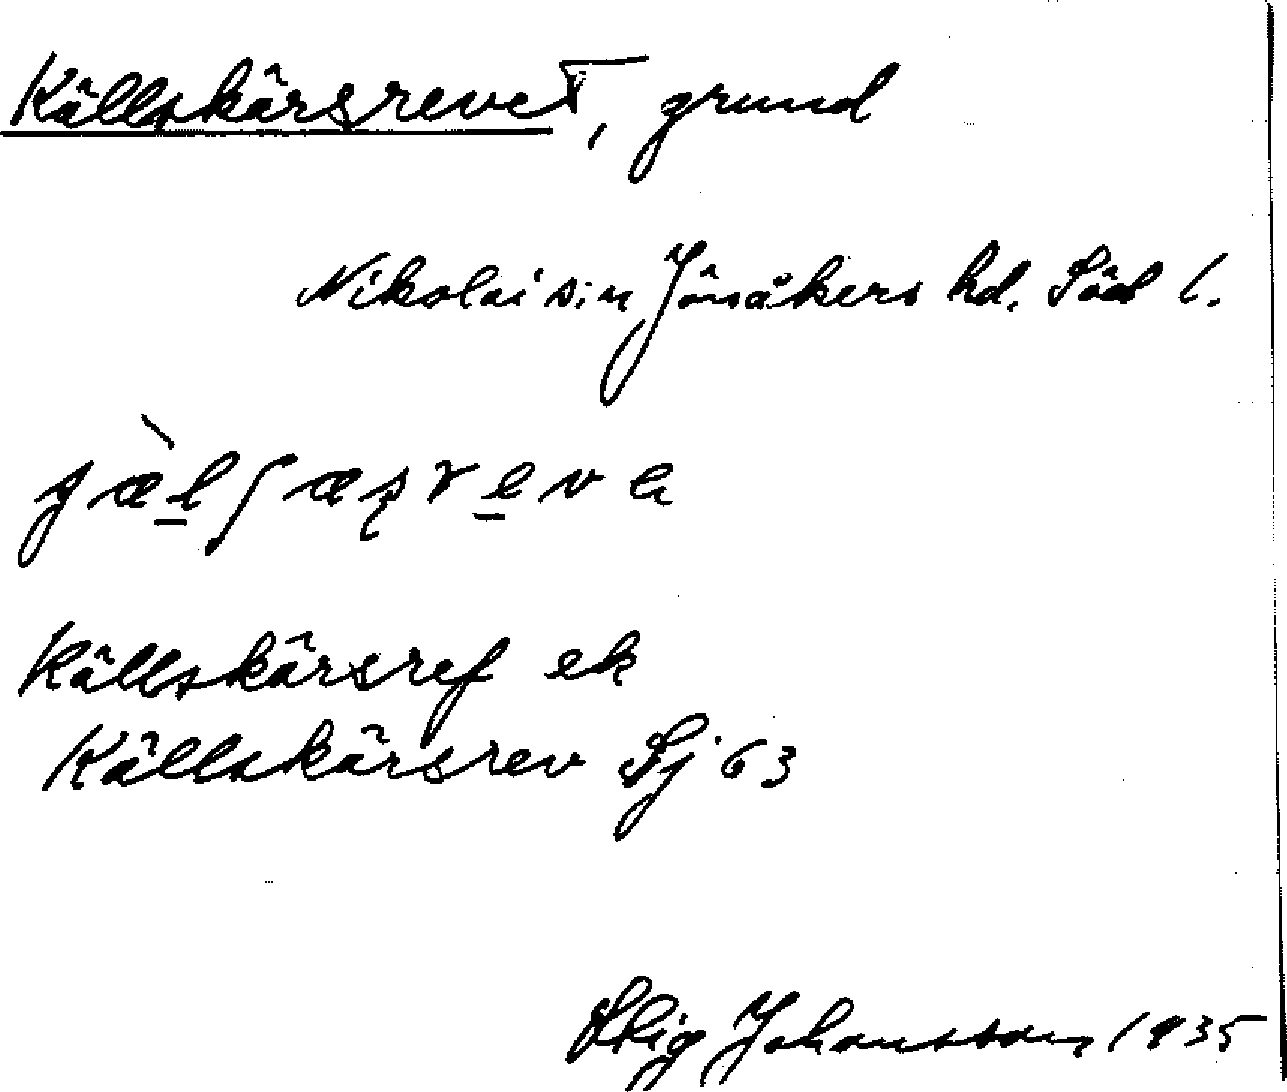 Källskärsrevet, grund
Nikolai sn Jönåkers hd. Söd l.
Källskärsref ek
Källskärsrev Sj 63
Stig Johansson 1935